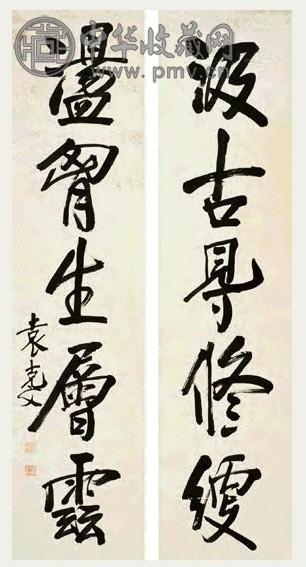 中华收藏网
www.pmv.cn
汲古㝵修綆
盪胷生層雲
袁克文